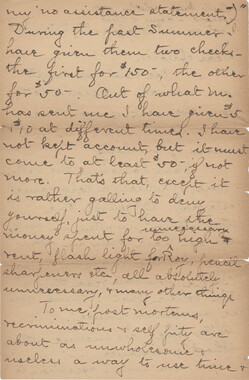 my 'no assistance' statement.)
During the past Summer I
have given them two checks -
the first for $150-, the other
for $50- Out of what M.
has sent me I have given $5
& $10 at different times. I have
not kept account, but it must
come to at least $50- if not
more. That's that, except it
is rather galling to deny
yourself, just to have the
money spent for too high unnecessary
rent, flash light for Roy, pencil
sharpeners etc, all absolutely
unnecessary, & many other things
To me, post mortems,
recriminations & self pity are
about as unwholesome &
useless a way to use time &